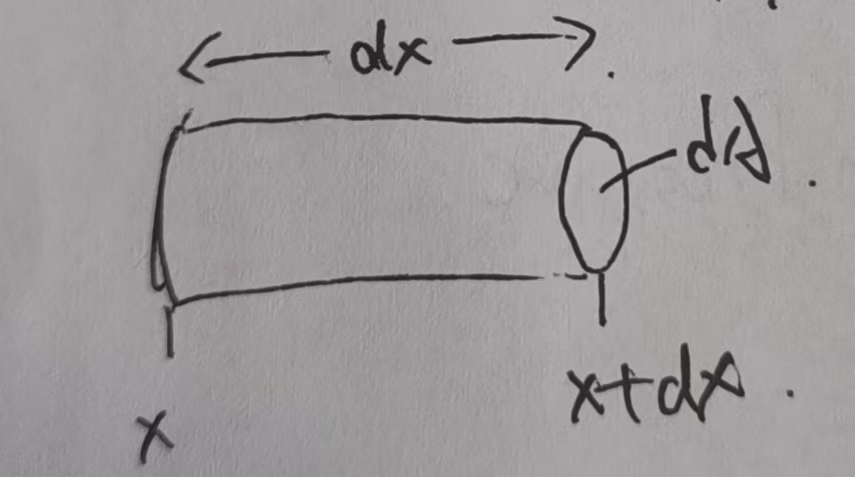 dx
dA
x
x+dx